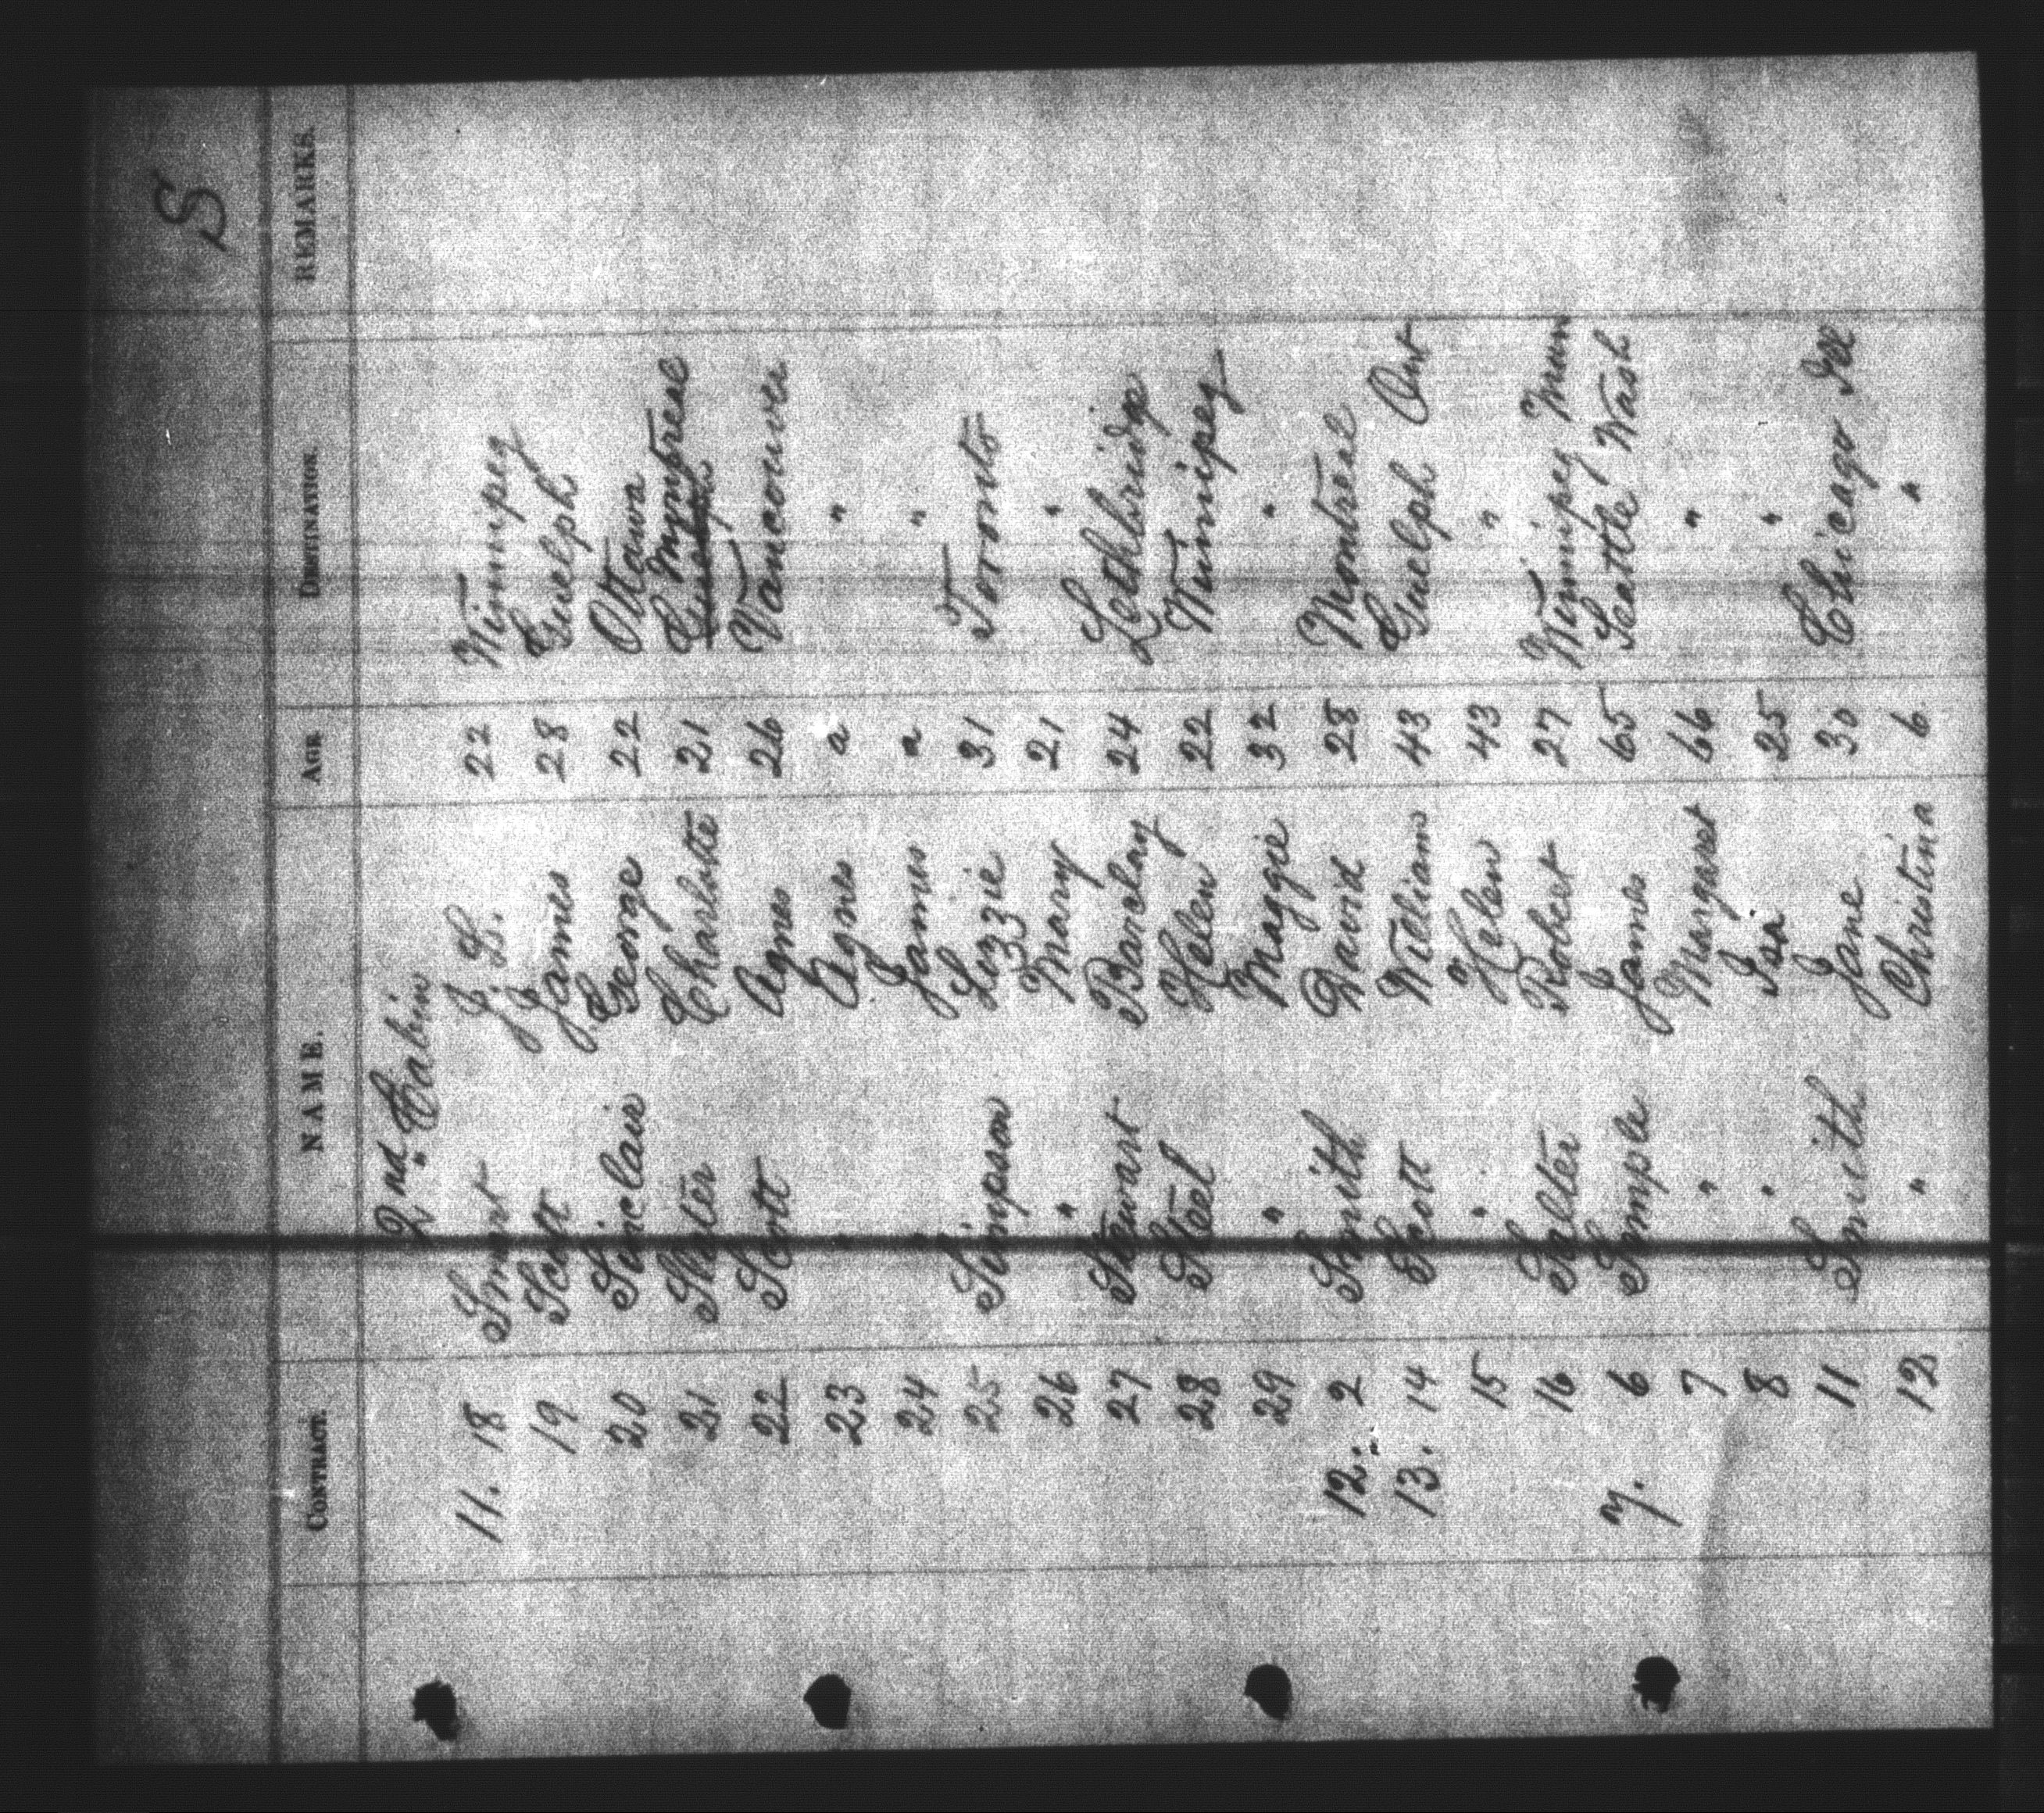 S
CONTRACT. NAME. AGE DESTINATION. REMARKS.
2nd Cabin
11. 18 Smart J. L. 22 Winnipeg
19 Scott James 28 Guelph
20 Sinclair George 22 Ottawa
21 Slater Charlotte 21 Montreal
22 Scott Agnes 26 Vancouver
23 Agnes a "
24 James a "
25 Simpson Lizzie 31 Toronto
26 " Mary 21 "
27 Stewart Barclay 24 Lethbridge
28 Steel Helen 22 Winnipeg
29 " Maggie 32 "
12. 2 Smith David 28 Montreal
13. 14 Shott William 43 Guelph Ont
15 " Helen 43 "
16 Salter Robert 27 Winnipeg Man
M. 6 Simple James 65 Seattle Wash
7 " Margaret 66 "
8 " Isa 25 "
11 Smith Jane 30 Chicago Ill
12 " Christina 6 "